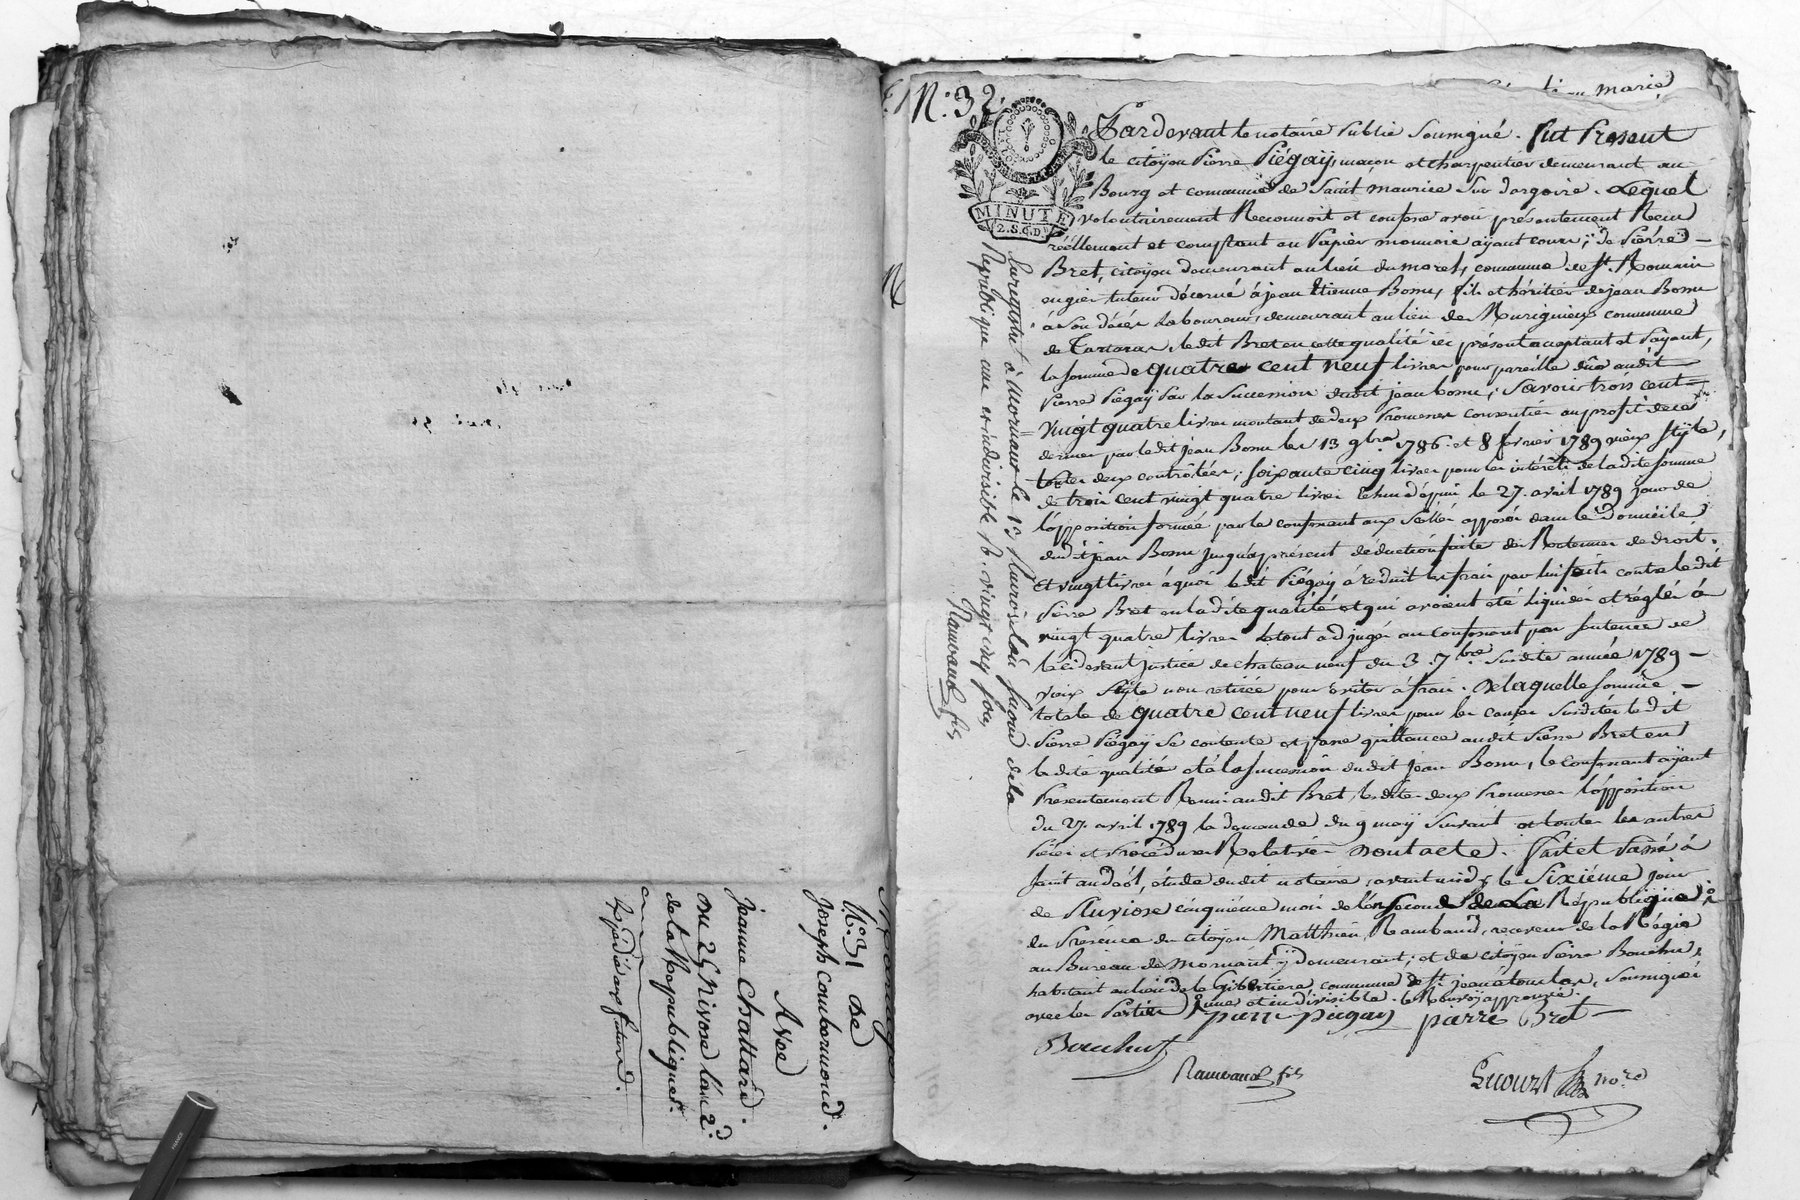 N.° 31 de
Mariage
Joseph Combarmond.
Avec
jeanne chattard.
du 25 Nivose l'an 2.d
de la République.
Expédié aux futurs.
N.° 32.
MINUTE
2.S.6.D.rs
Pardevant le notaire Public Soussigné. fut Présent
le citoÿen Pierre Piégaÿ, maçon et charpentier demeurant au
Bourg et commune de Saint maurice Sur dargoire. Lequel
volontairement Reconnoit et confesse avoir présentement Recu
réellement et comptant en Papier monnoie aÿant cours, de Pierre
Bret, citoÿen demeurant au lieu du morel, commune de St. Romain
en gier tuteur décerné à jean Etienne Bonn, fils et héritier de jean Bonn
à son décès Laboureur, demeurant au lieu de commune
de Tartaras, ledit Bret en cette qualité ici présent acceptant et Paÿant,
la somme de quatre cent neuf livres pour pareille düe audit
Pierre Piégaÿ Par la Succession dudit jean bonn; Savoir trois cent
vingt quatre livres montant de deux Promesses Consenties au profit de ce
dernier par ledit jean Bonn les 13 9bre 1786. et 8 fevrier 1789 vieux Stÿle,
toutes deux contrôlées; soixante cinq livres pour les intérêts de ladite somme
de trois cent vingt quatre livres échus depuis le 27. avril 1789 jour de
l'opposition formée par le confessant aux Scellés apposés dans le Domicile
dudit jean Bonn jusqu'aprésent déduction faite des Retenues de droit.
Et vingt livres à quoi ledit Piégaÿ à réduit les frais par lui faits contre ledit
Pierre Bret en ladite qualité et qui avoient été liquidés et réglés à
vingt quatre livres Le tout adjugé au Confessant par Sentence de
la cidevant justice de chateau neuf du 3. 7.bre Susdite année 1789
vieux Stÿle non retirée pour éviter à frais. De laquelle Somme
totale de quatre cent neuf livres pour les causes Susdites ledit
Pierre Piégaÿ Se contente et passe quittance audit Pierre Bret en
ladite qualité et à la Succession dudit jean Bonn, le Confessant aÿant
Présentement Remis audit Bret, lesdites deux Promesses l'opposition
du 27. avril 1789 la demande du 9 maÿ Suivant et toutes les autres
Pièces et Procédures Relatives dont acte. Fait et Passé à
Saint andéol, étude dudit notaire, avant midy le Sixième jour
de Pluviose cinquième mois de l'an Second de La République
En Présence du citoÿen Matthieu Rambaud, receveur de la Régie
au Bureau de Mornant ÿ demeurant, et de citoÿen Pierre Bouchu,
habitant au lieu de la Gibertiere commune de St. jean à toulas, Soussignés
avec les Parties. une et indivisible. le Renvoÿ approuvé.
pierre piegay pierre Bret
Bouchut
Rambaud fils
no.re
Enregistré à Mornant le 13 Pluviose l'an second de la
République une et indivisible R. vingt cinq sous
Rambaud fils